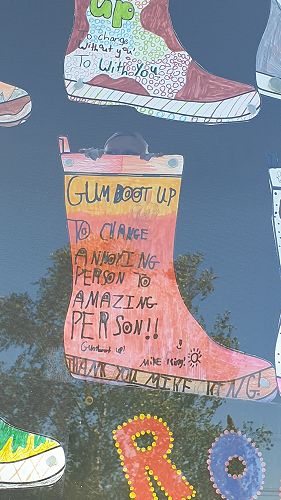 up
to change
Without you
To With You
GUMBOOT UP
TO CHANGE
ANNOYING
PERSON TO
AMAZING
PERSON!!
Gumboot up!
Mike King!
THANK YOU MIKE KING.
RO